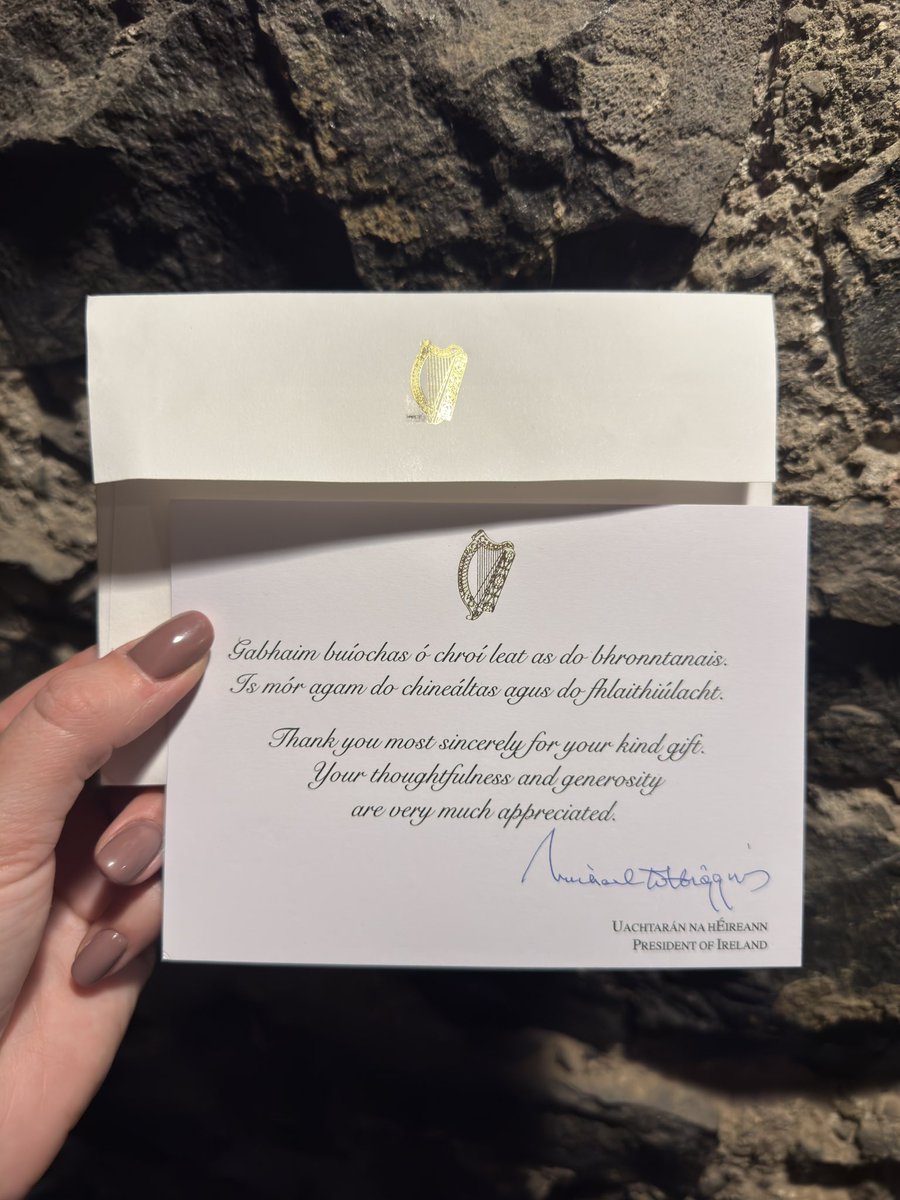 Gabhaim buíochas ó chroí leat as do bhronntanais.
Is mór agam do chineáltas agus do fhlaithiúlacht.
Thank you most sincerely for your kind gift.
Your thoughtfulness and generosity
are very much appreciated.
Michael D Higgins
UACHTARÁN NA HÉIREANN
PRESIDENT OF IRELAND